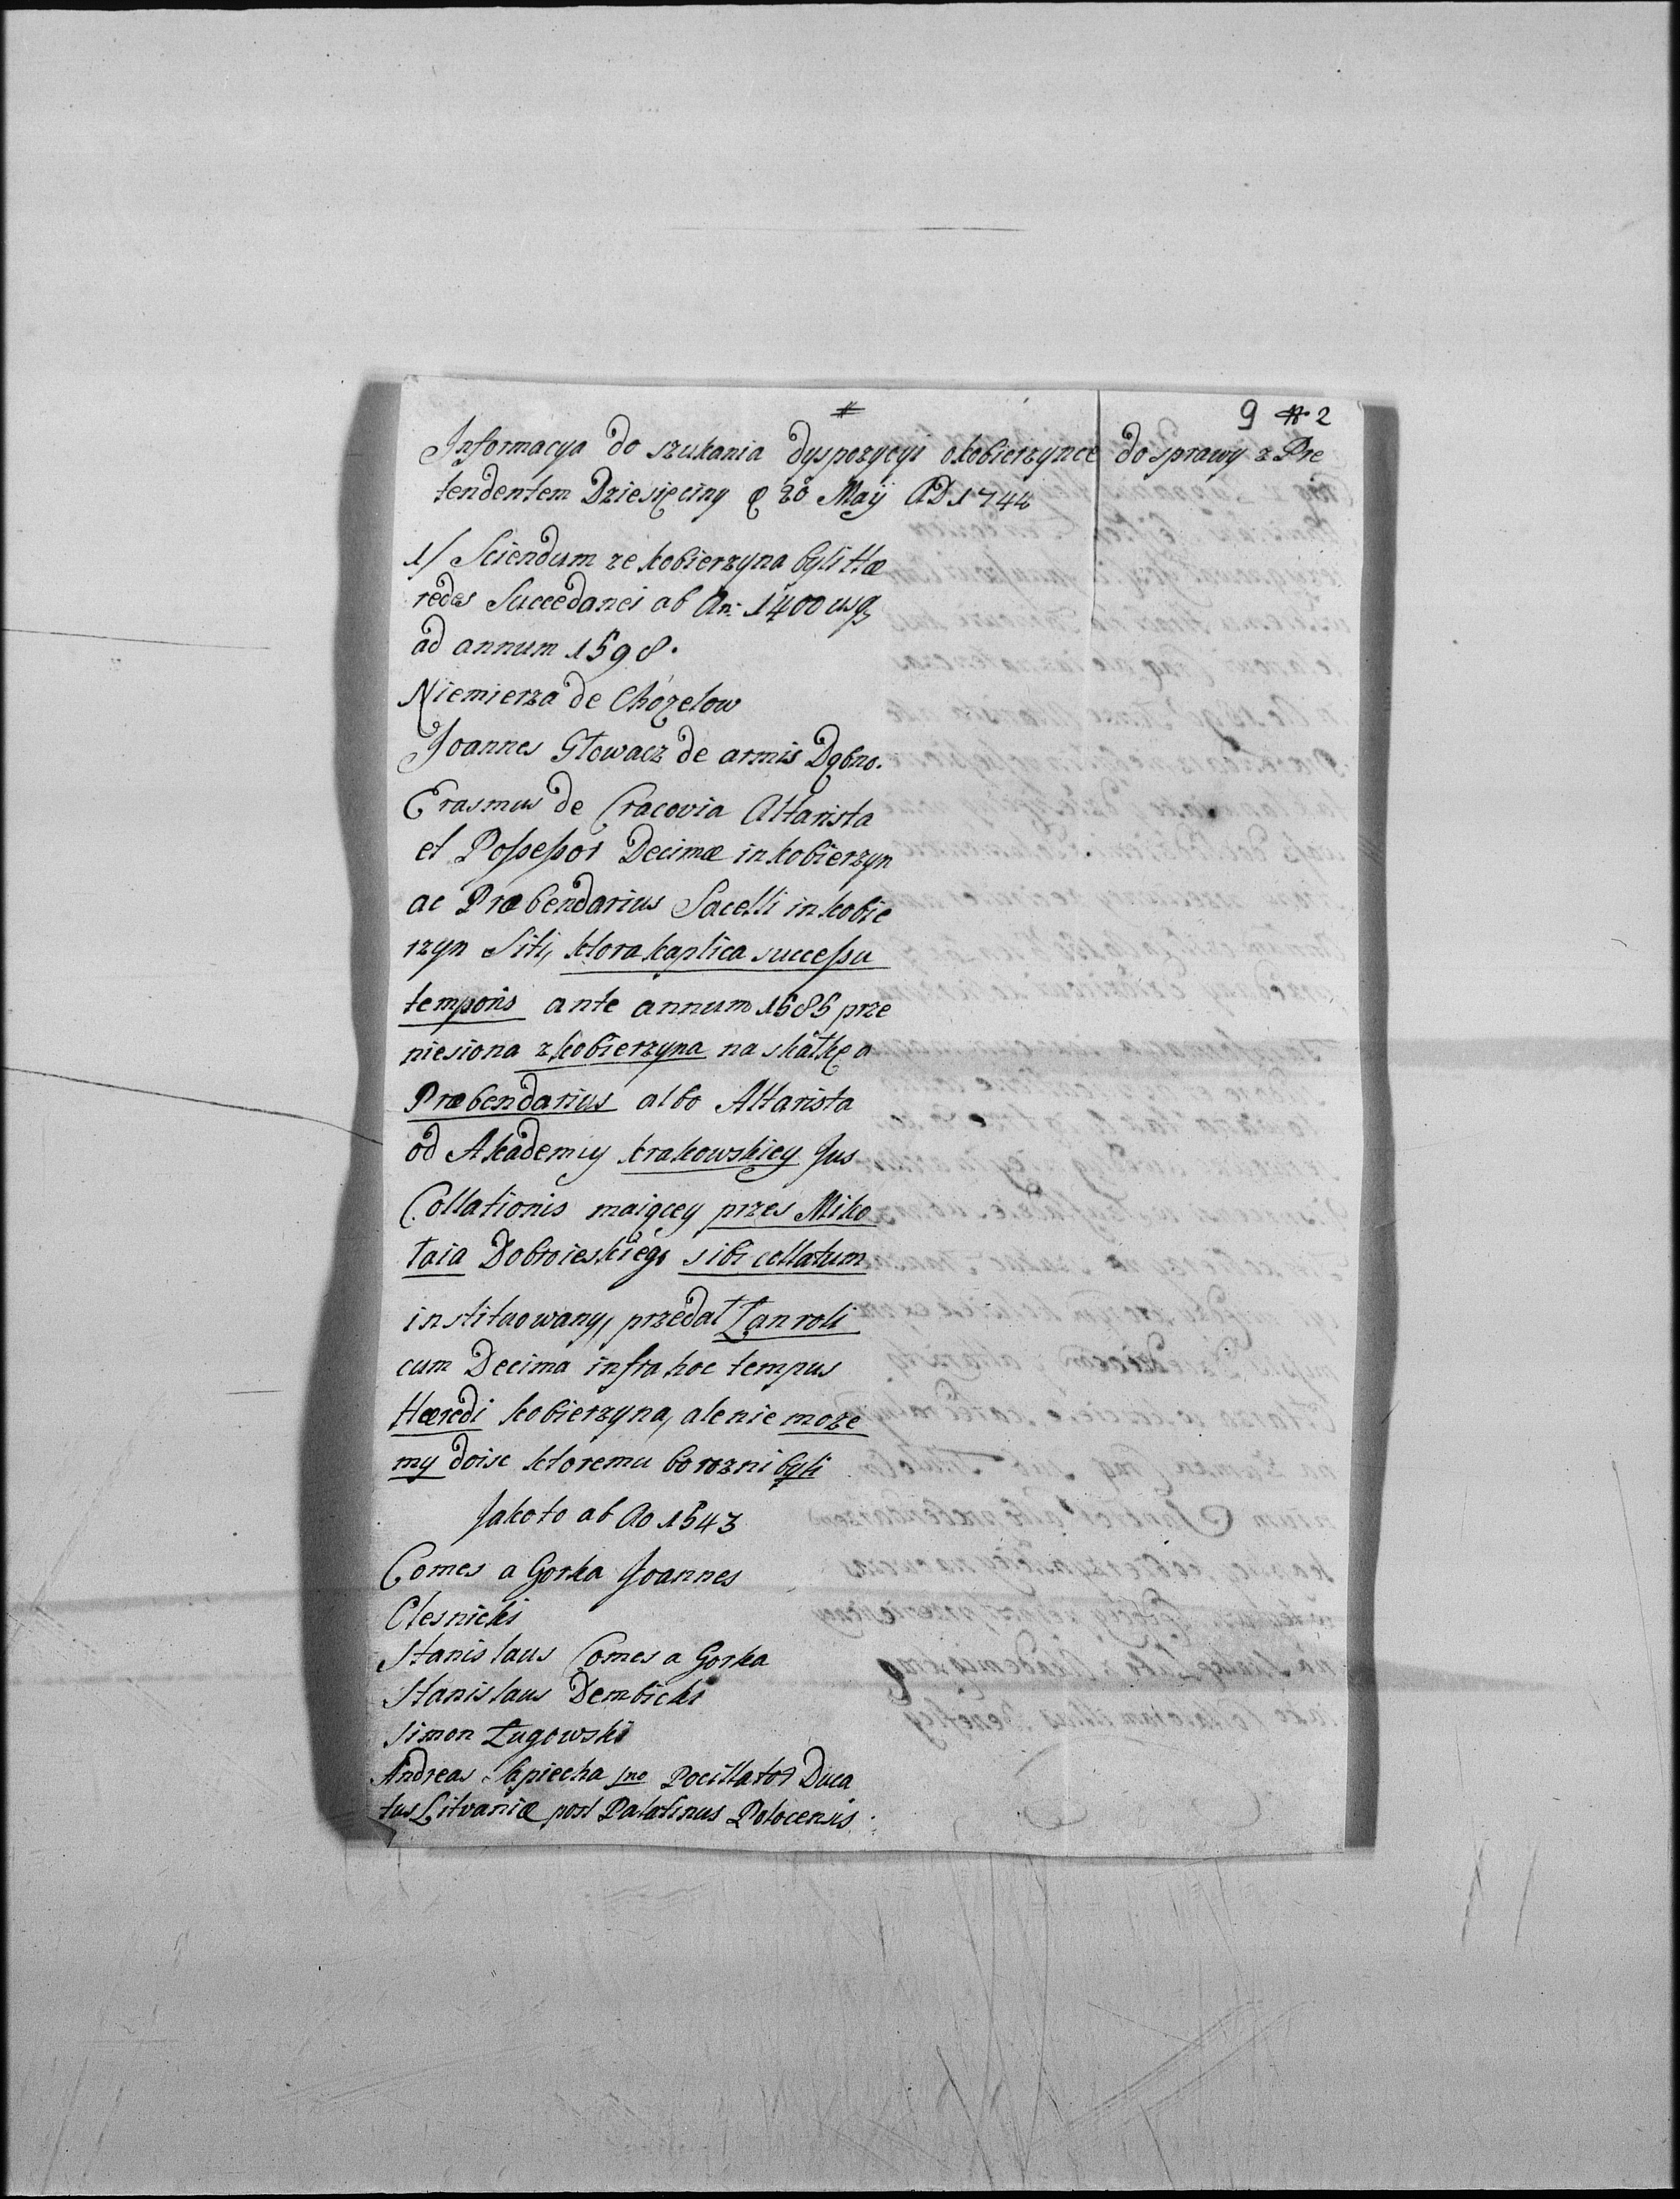 9 # 2
#
Informacya do szukania dyspozycyi okobierzynce do sprawy z Pre
tendentem Dziesięciny 20 Maij AD 1744
1/ Sciendum ze kobierzyna byli Hæ
redes Succedanei ab An: 1400 usq
ad annum 1598.
Niemierza de Chozelow
Joannes Głowacz de armis Dębno.
Erasmus de Cracovia Altarista
et Possessor Decimæ in kobierzyn
ac Præbendarius Sacelli in kobie
rzyn Siti, ktora kaplica successu
temporis ante annum 1585 prze
niesiona z kobierzyna na skałkę a
Præbendarius albo Altarista
od Akademiy krakowskiey Jus
Collationis maiącey przes Miko
łaia Dobroieskiego sibi collatum
instituowany, przedał Łan roli
cum Decima infra hoc tempus
Hæredi kobierzyna, ale nie moze
my doisc ktoremu bo rozni byli
Jako to ab Ao 1543
Comes a Gorka Joannes
Olesnicki
Stanislaus Comes a Gorka
Stanislaus Dembicki
Simon Ługowski
Andreas Sapiecha Pocillator Duca
tus Litvaniæ post Palatinus Polocensis.